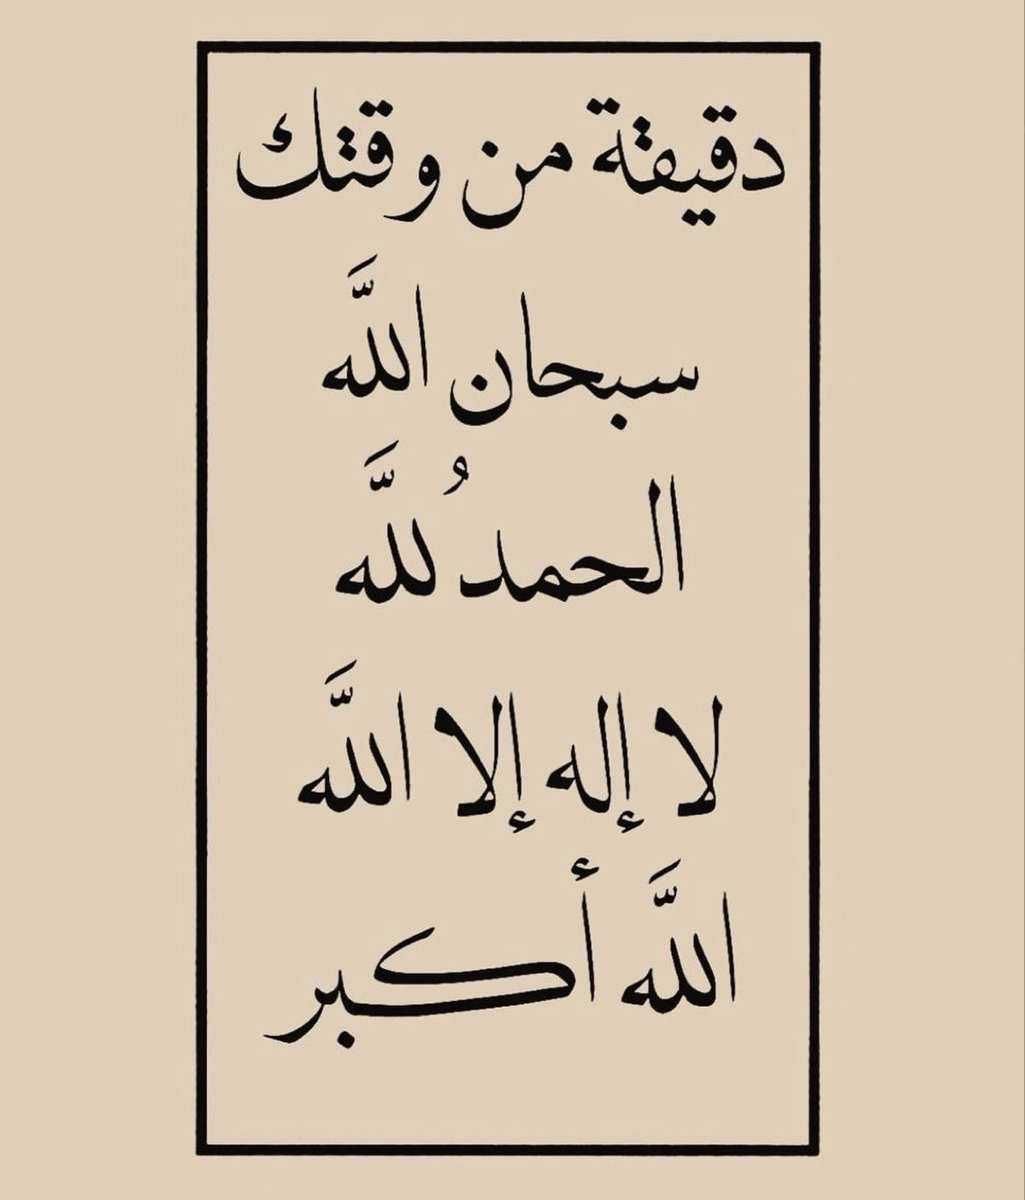 دقيقة من وقتك
سبحان اللَّه
الحمدُ للَّه
لا إله إلا اللَّه
اللَّه أكبر